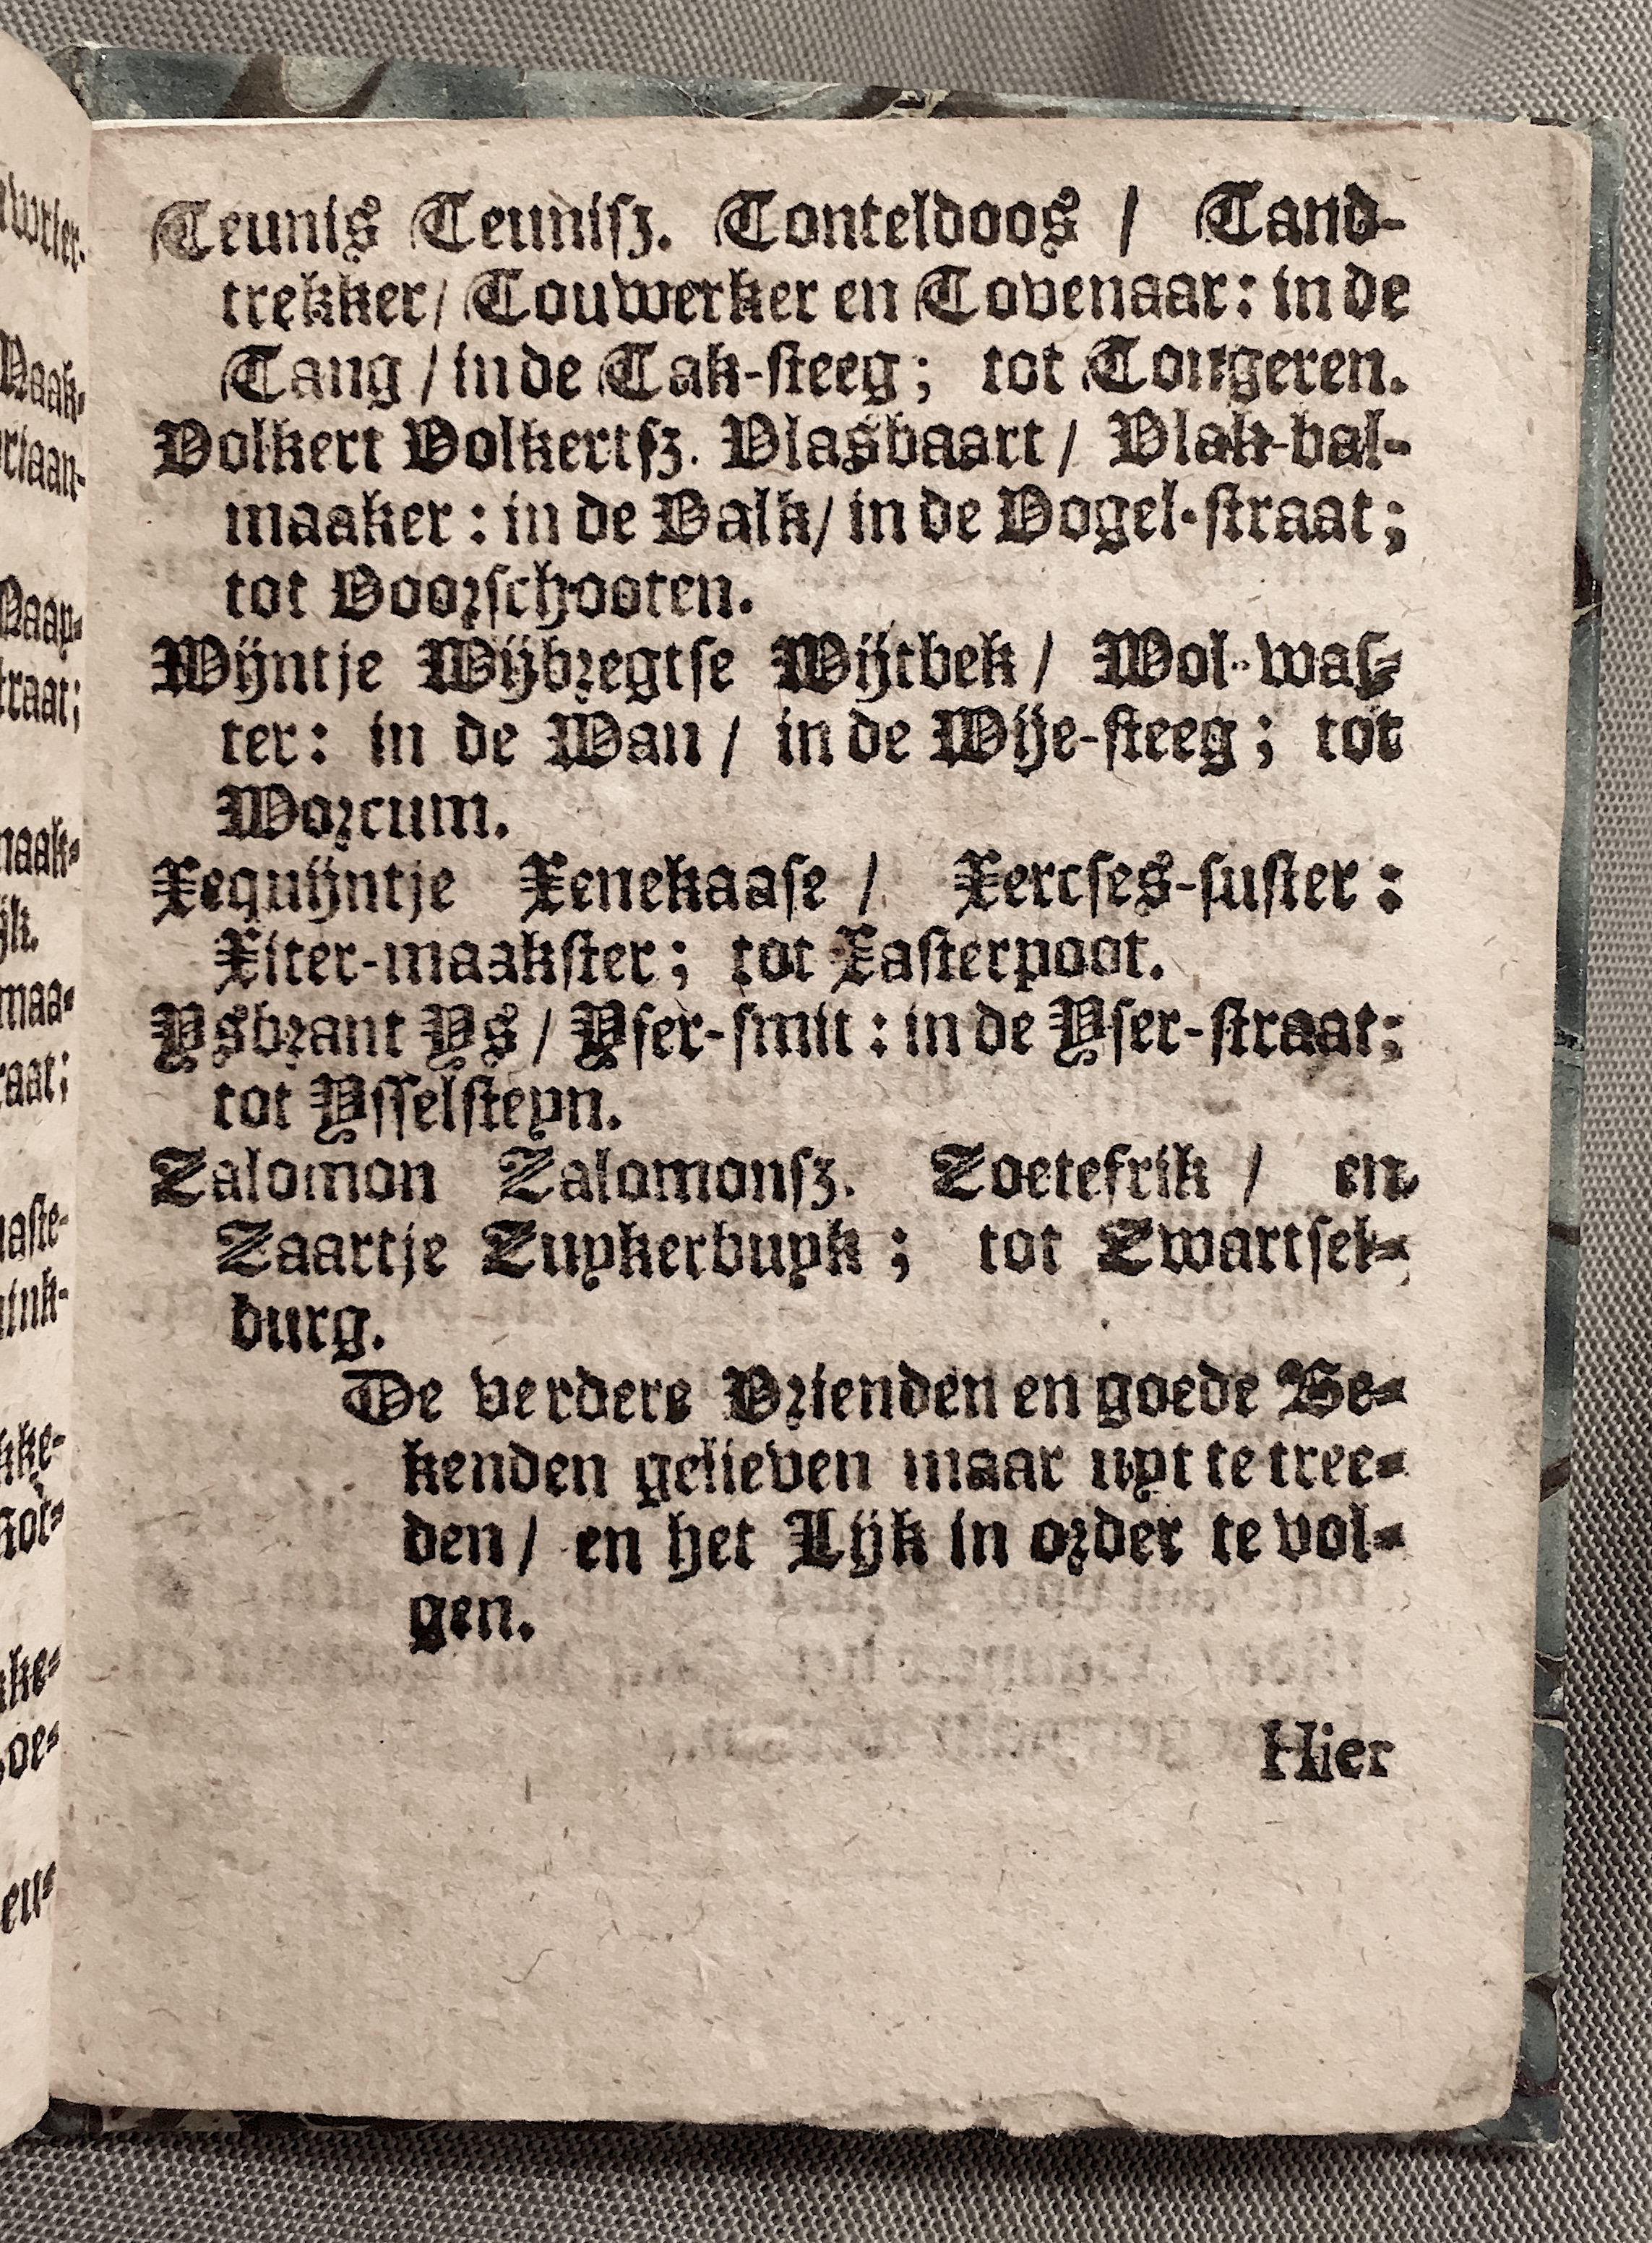 Teunis Teunisz. Tonteldoos / Tand-
trekker / Touwerker en Tovenaar: in de
Tang / in de Tak-steeg; tot Tongeren.
Volkert Volkertsz. Vlasbaart / Vlak-bal-
maaker: in de Valk / in de Vogel-straat;
tot Voorschooten.
Wijntje Wijbregtse Wijtbek / Wol-was-
ter: in de Wan / in de Wije-steeg; tot
Worcum.
Xequijntje Xenekaase / Xercses-suster:
Xiter-maakster; tot Xasterpoot.
Ysbrant Ys / Yser-smit: in de Yser-straat;
tot Ysselsteyn.
Zalomon Zalomonsz. Zoetefrik / en
Zaartje Zuykerbuyk; tot Zwartsel-
burg.
De verdere Vrienden en goede Be-
kenden gelieven maar uyt te tree-
den / en het Lijk in order te vol-
gen.
Hier